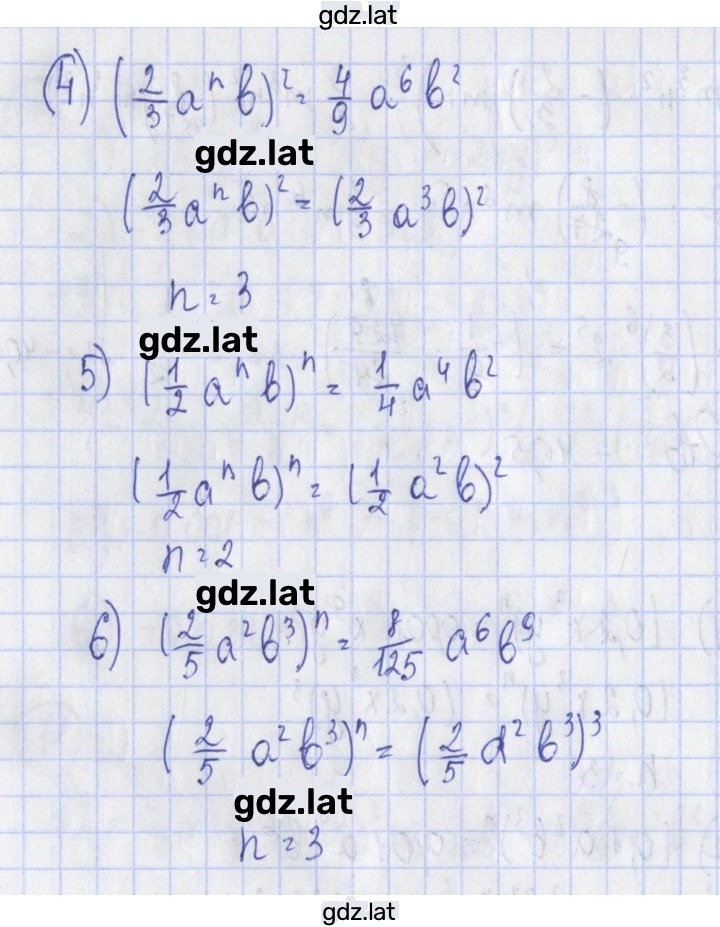 gdz.lat
4) (2/3 aⁿ b)² = 4/9 a⁶ b²
gdz.lat
(2/3 aⁿ b)² = (2/3 a³ b)²
n = 3
gdz.lat
5) (1/2 aⁿ b)ⁿ = 1/4 a⁴ b²
(1/2 aⁿ b)ⁿ = (1/2 a² b)²
n = 2
gdz.lat
6) (2/5 a² b³)ⁿ = 8/125 a⁶ b⁹
(2/5 a² b³)ⁿ = (2/5 a² b³)³
gdz.lat
n = 3
gdz.lat